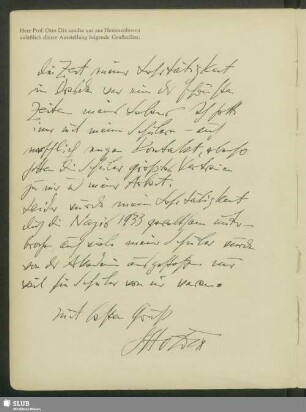 Herr Prof. Otto Dix sandte uns aus Hemmenhofen
anläßlich dieser Ausstellung folgende Grußzeilen:
die Zeit meiner Lehrtätigkeit
in Dresden war eine der schönsten
Zeiten meines Lebens. Ich hatte
immer mit meinen Schülern – auch
menschlich engen Kontakt, ebenso
hatten die Schüler größtes Vertrauen
zu mir u meiner Arbeit.
Leider wurde meine Lehrtätigkeit
durch die Nazis 1933 gewaltsam unter-
brochen auch viele meiner Schüler wurden
von der Akademie ausgestoßen nur
weil sie Schüler von mir waren.
mit besten Grüß
Otto Dix
SLUB